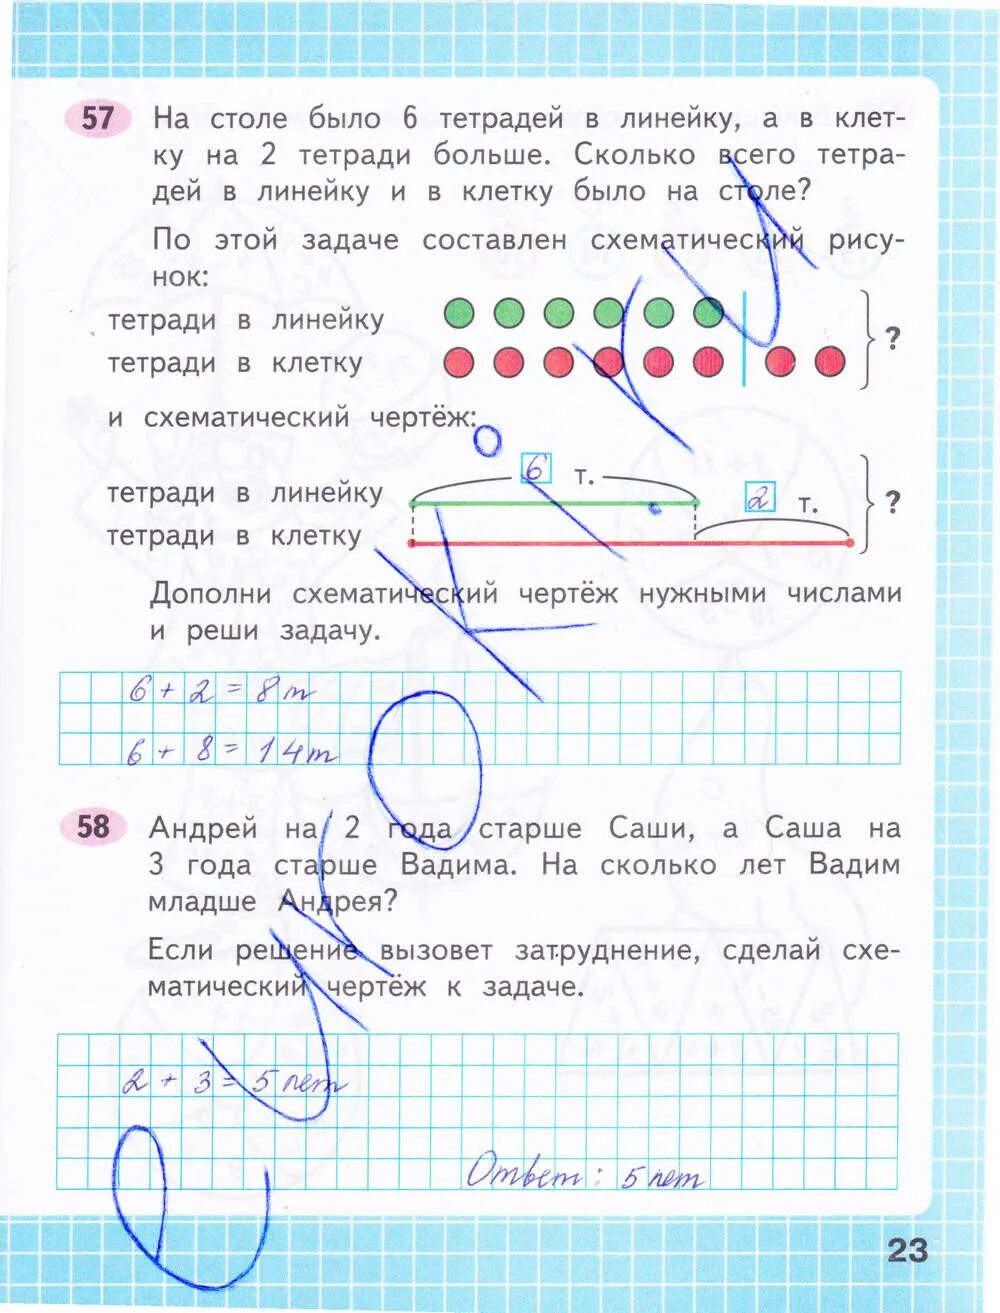 57 На столе было 6 тетрадей в линейку, а в клет-
ку на 2 тетради больше. Сколько всего тетра-
дей в линейку и в клетку было на столе?
По этой задаче составлен схематический рису-
нок:
тетради в линейку
тетради в клетку
?
и схематический чертёж:
6 т.
тетради в линейку
2 т.
?
тетради в клетку
Дополни схематический чертёж нужными числами
и реши задачу.
6 + 2 = 8 т
6 + 8 = 14 т
58 Андрей на 2 года старше Саши, а Саша на
3 года старше Вадима. На сколько лет Вадим
младше Андрея?
Если решение вызовет затруднение, сделай схе-
матический чертёж к задаче.
2 + 3 = 5 лет
Ответ: 5 лет
23